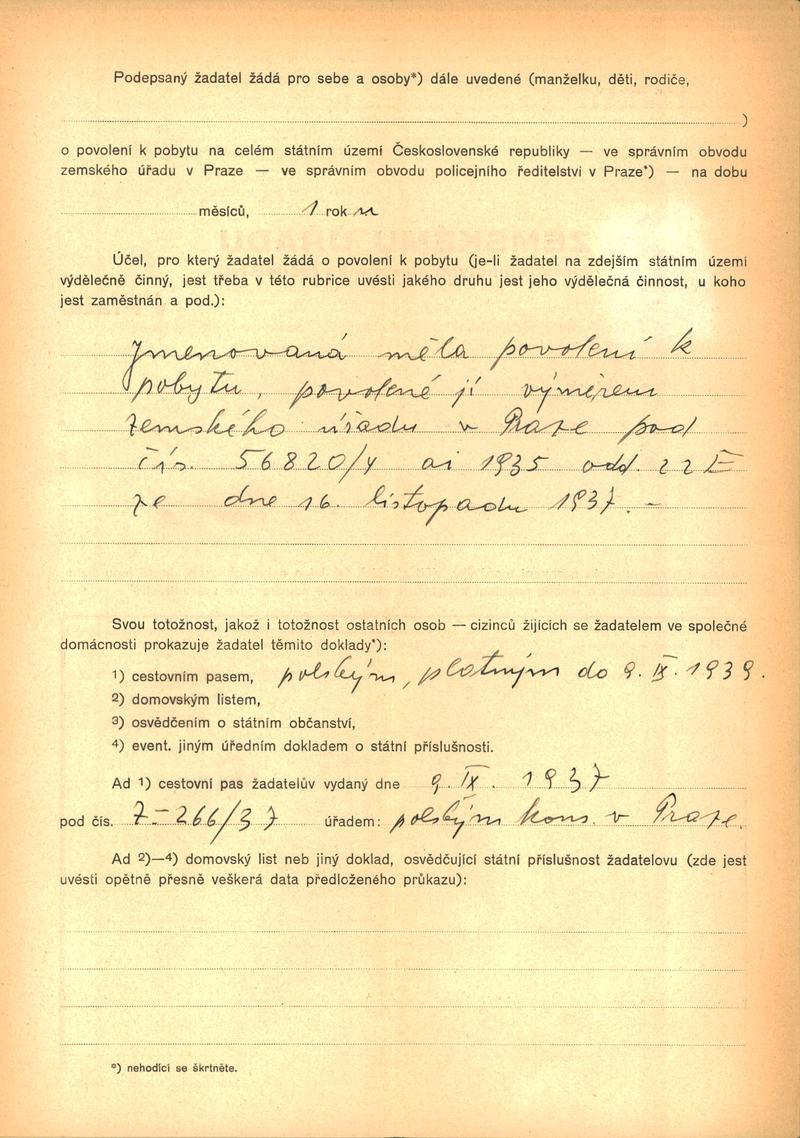 Podepsaný žadatel žádá pro sebe a osoby*) dále uvedené (manželku, děti, rodiče,
)
o povolení k pobytu na celém státním území Československé republiky — ve správním obvodu
zemského úřadu v Praze — ve správním obvodu policejního ředitelství v Praze*) — na dobu
měsíců, 1 roku
Účel, pro který žadatel žádá o povolení k pobytu (je-li žadatel na zdejším státním území
výdělečně činný, jest třeba v této rubrice uvésti jakého druhu jest jeho výdělečná činnost, u koho
jest zaměstnán a pod.):
Jmenovaná měla povolení k
pobytu, povolené jí výměrem
zemského úřadu v Praze pod
čís. 56820/4 ai 1935 odd. 22
ze dne 16. listopadu 1937. –
Svou totožnost, jakož i totožnost ostatních osob — cizinců žijících se žadatelem ve společné
domácnosti prokazuje žadatel těmito doklady*):
1) cestovním pasem, polským, platným do 9. IX. 1939.
2) domovským listem,
3) osvědčením o státním občanství,
4) event. jiným úředním dokladem o státní příslušnosti.
Ad 1) cestovní pas žadatelův vydaný dne 9. IX. 1937
pod čís. 7-266/37 úřadem: polským kons. v Praze.
Ad 2)—4) domovský list neb jiný doklad, osvědčující státní příslušnost žadatelovu (zde jest
uvésti opětně přesně veškerá data předloženého průkazu):
*) nehodící se škrtněte.